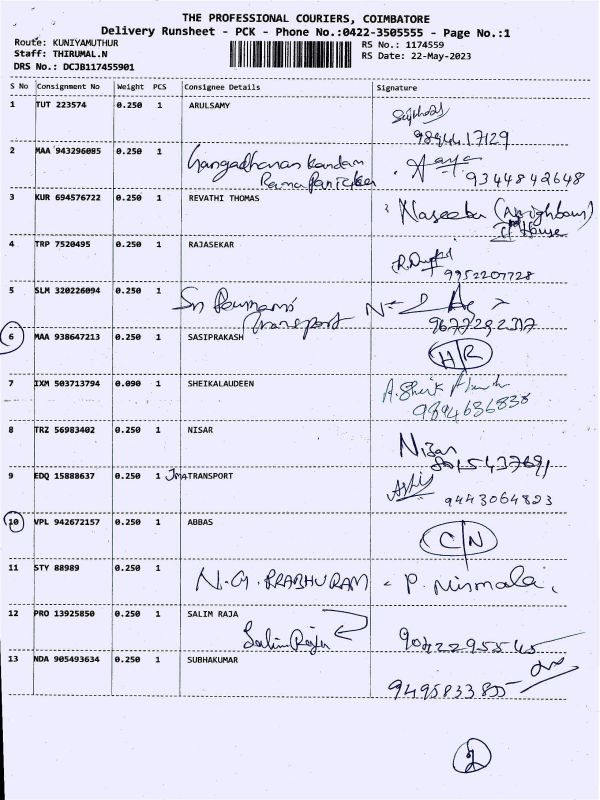 THE PROFESSIONAL COURIERS, COIMBATORE
Delivery Runsheet - PCK - Phone No.:0422-3505555 - Page No.:1
Route: KUNIYAMUTHUR RS No.: 1174559
Staff: THIRUMAL.N RS Date: 22-May-2023
DRS No.: DCJB117455901
S No Consignment No Weight PCS Consignee Details Signature
1 TUT 223574 0.250 1 ARULSAMY
9894417129
2 MAA 943296085 0.250 1
9344842648
3 KUR 694576722 0.250 1 REVATHI THOMAS Naseeba (Neighbour)
House
4 TRP 7520495 0.250 1 RAJASEKAR
9952207728
5 SLM 320226094 0.250 1 Sri
Transport
9677292317
6 MAA 938647213 0.250 1 SASIPRAKASH H/R
7 IXM 503713794 0.090 1 SHEIKALAUDEEN A. Sheik
9894686838
8 TRZ 56983402 0.250 1 NISAR Nizar
9 EDQ 15888637 0.250 1 Jma TRANSPORT
9443064823
10 VPL 942672157 0.250 1 ABBAS C/N
11 STY 88989 0.250 1 N.G. PRABHURAM - P. Nirmala
12 PRO 13925850 0.250 1 SALIM RAJA
Salim Raja
13 NDA 905493634 0.250 1 SUBHAKUMAR
9495833855
2